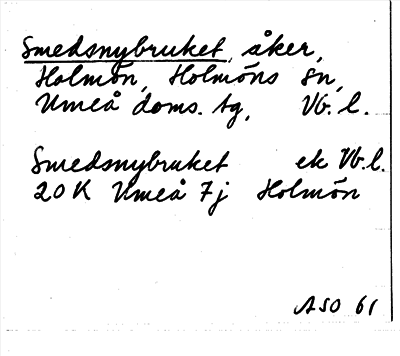 Smedsnybruket, åker,
Holmön, Holmöns sn,
Umeå doms. tg, Vb. l.
Smedsnybruket ek Vb. l.
20 K Umeå 7j Holmön
ASO 61